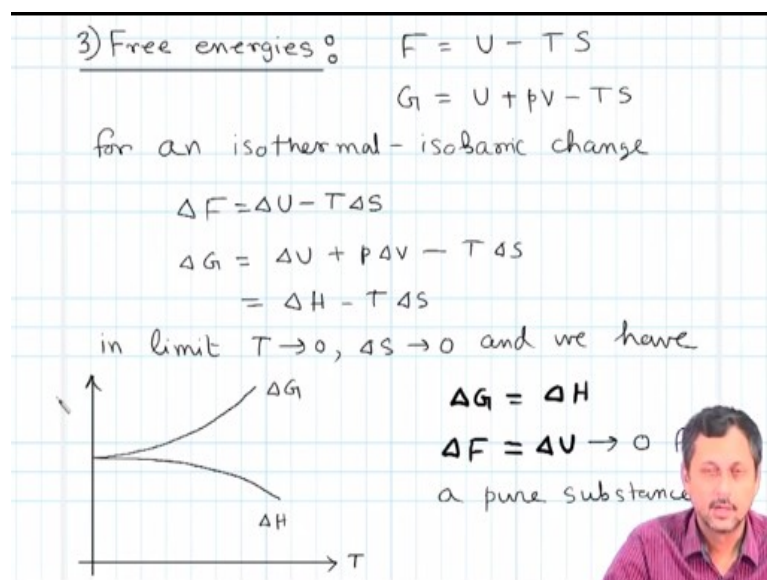 3) Free energies: F = U - TS
G = U + pV - TS
for an isothermal - isobaric change
ΔF = ΔU - TΔS
ΔG = ΔU + pΔV - TΔS
= ΔH - TΔS
in limit T → 0, ΔS → 0 and we have
ΔG
ΔG = ΔH
ΔF = ΔU → 0
a pure substance
ΔH
T